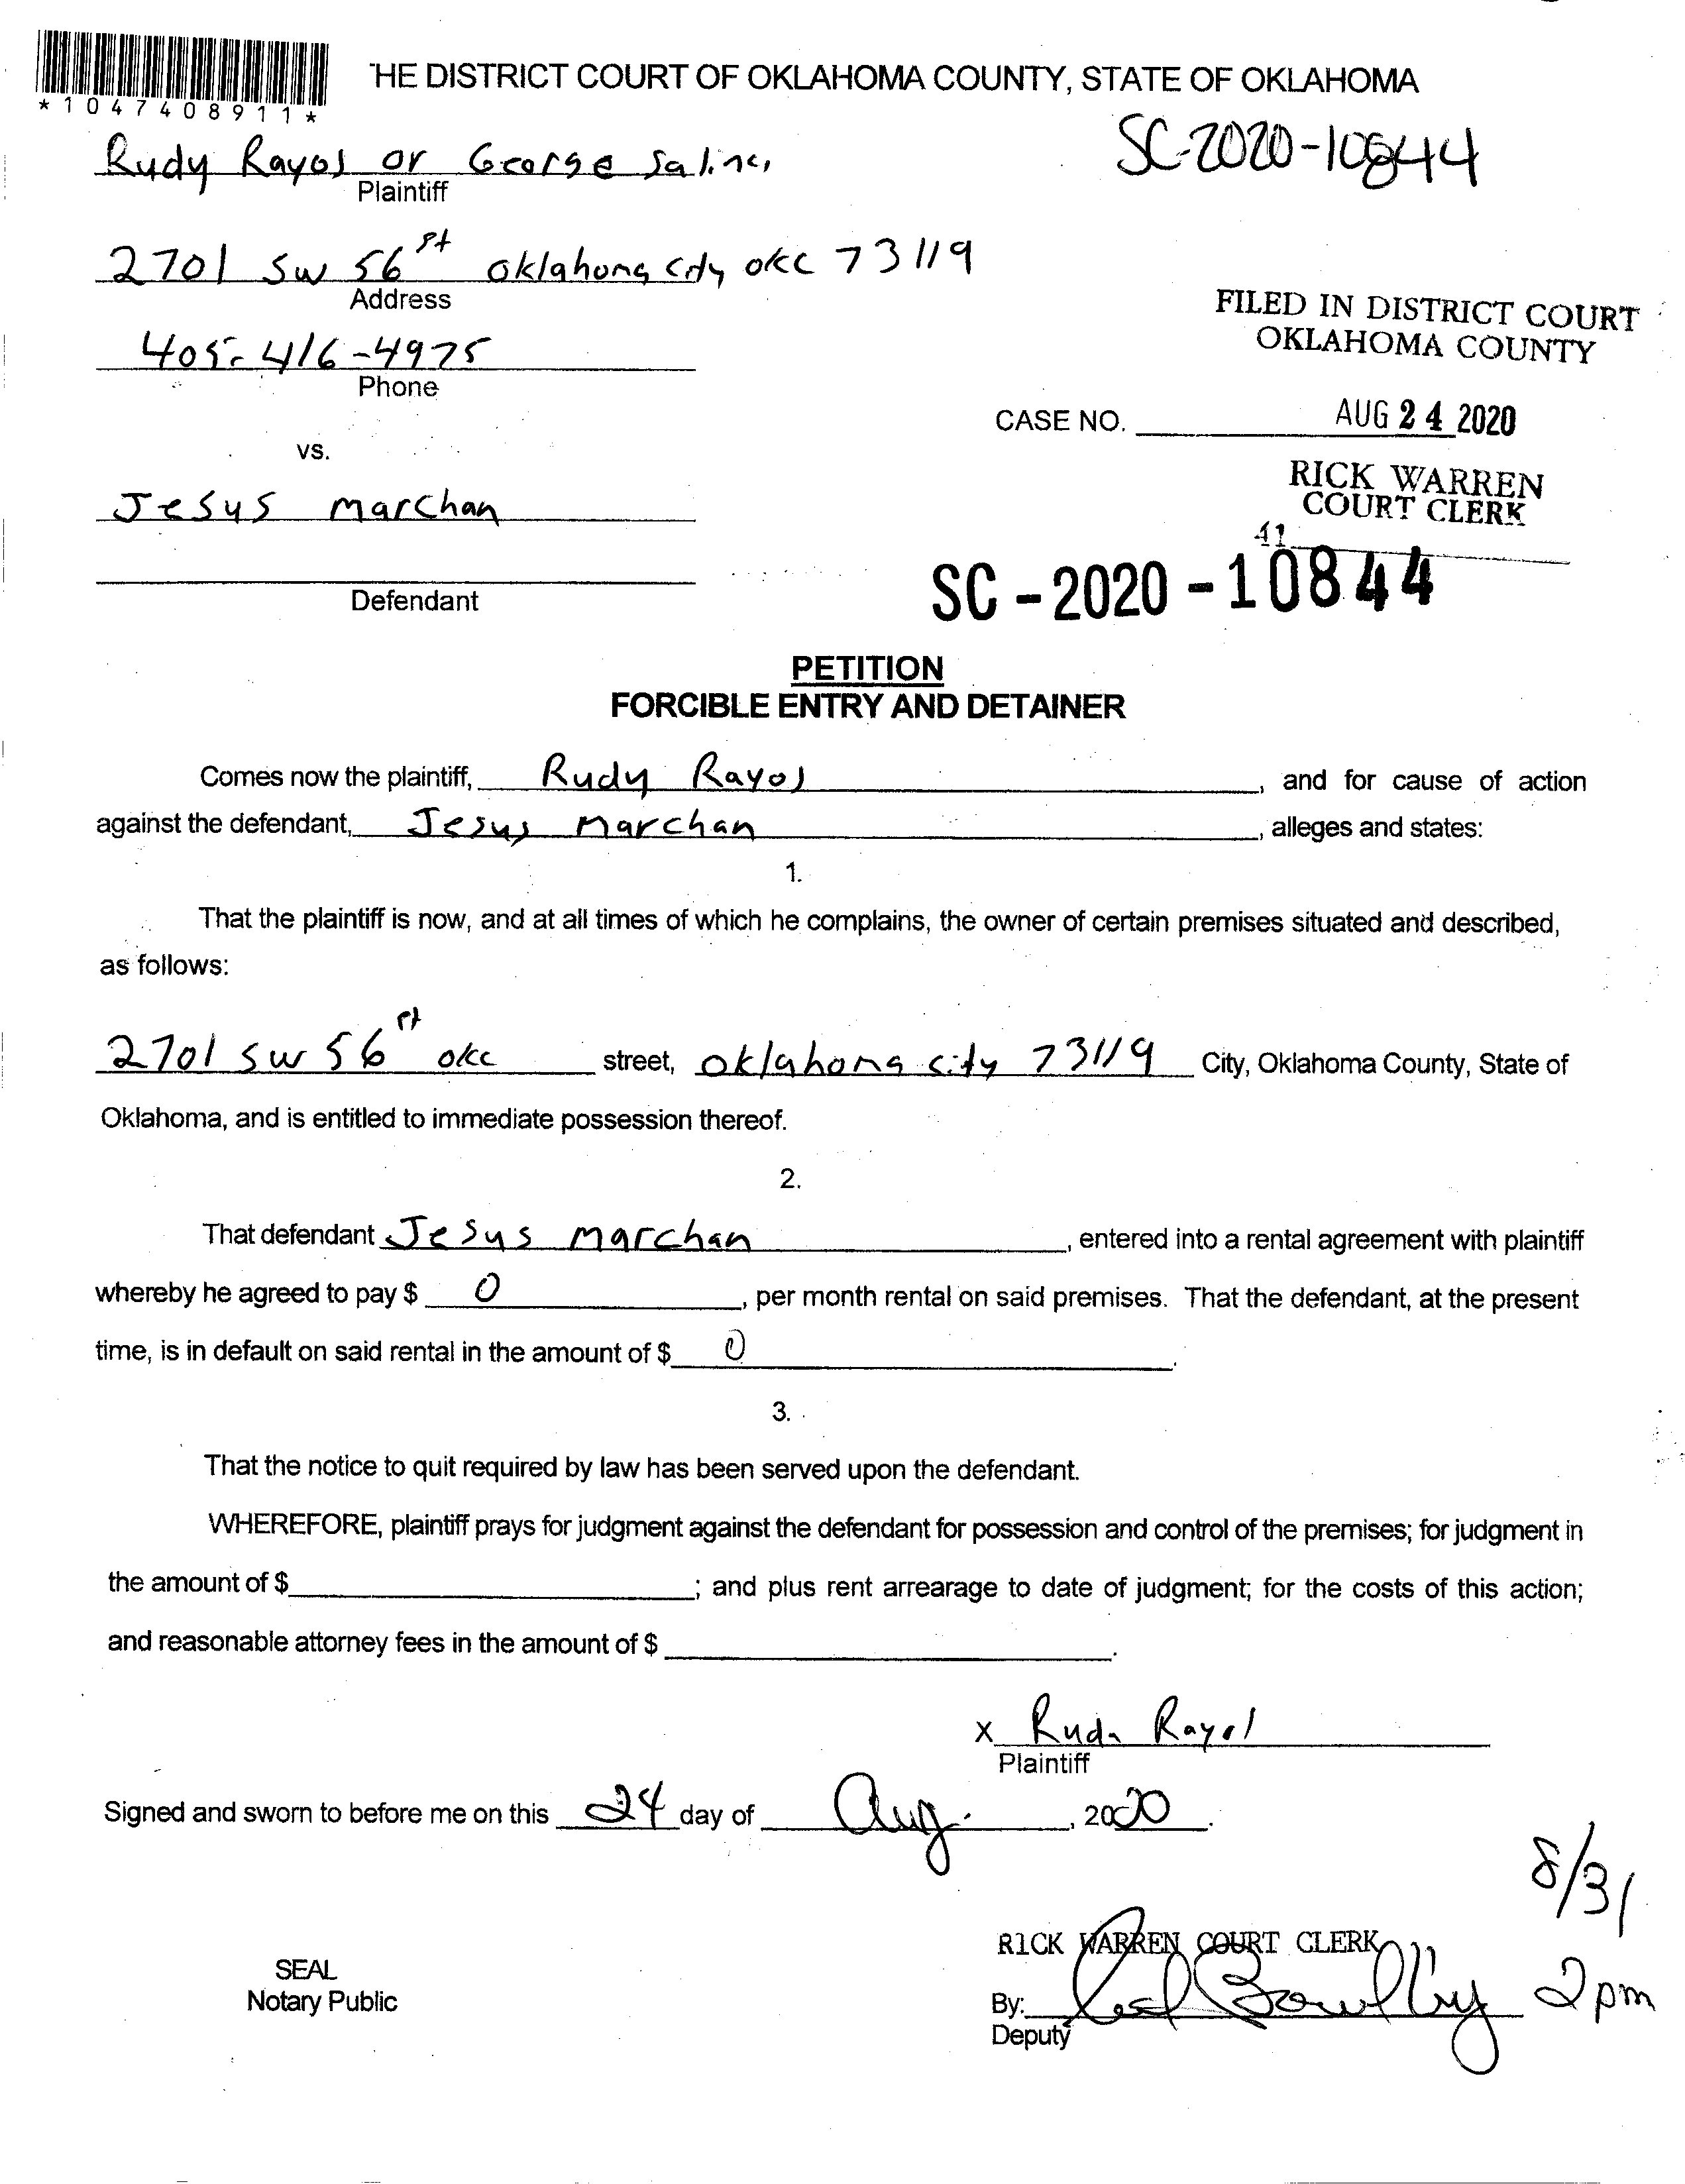 *1047408911*
THE DISTRICT COURT OF OKLAHOMA COUNTY, STATE OF OKLAHOMA
SC-2020-10844
Rudy Rayos or George Salinas
Plaintiff
2701 SW 56 st oklahoma city okc 73119
Address
FILED IN DISTRICT COURT
OKLAHOMA COUNTY
405-416-4975
Phone
CASE NO.
AUG 24 2020
vs.
RICK WARREN
COURT CLERK
Jesus Marchan
41
SC-2020-10844
Defendant
PETITION
FORCIBLE ENTRY AND DETAINER
Comes now the plaintiff, Rudy Rayos, and for cause of action
against the defendant, Jesus Marchan, alleges and states:
1.
That the plaintiff is now, and at all times of which he complains, the owner of certain premises situated and described,
as follows:
2701 SW 56 st okc street, oklahoma city 73119 City, Oklahoma County, State of
Oklahoma, and is entitled to immediate possession thereof.
2.
That defendant Jesus Marchan, entered into a rental agreement with plaintiff
whereby he agreed to pay $ 0, per month rental on said premises. That the defendant, at the present
time, is in default on said rental in the amount of $ 0.
3.
That the notice to quit required by law has been served upon the defendant.
WHEREFORE, plaintiff prays for judgment against the defendant for possession and control of the premises; for judgment in
the amount of $; and plus rent arrearage to date of judgment; for the costs of this action;
and reasonable attorney fees in the amount of $.
X Rudy Rayos
Plaintiff
Signed and sworn to before me on this 24 day of Aug., 2020.
8/31
2pm
RICK WARREN COURT CLERK
SEAL
Notary Public
By:
Deputy